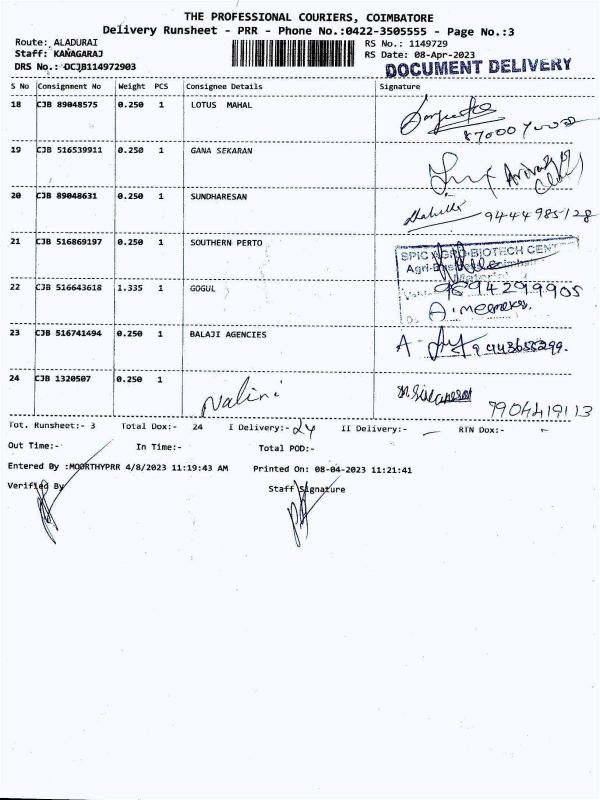 THE PROFESSIONAL COURIERS, COIMBATORE
Delivery Runsheet - PRR - Phone No.:0422-3505555 - Page No.:3
Route: ALADURAI RS No.: 1149729
Staff: KANAGARAJ RS Date: 08-Apr-2023
DRS No.: DCJB114972903 DOCUMENT DELIVERY
S No Consignment No Weight PCS Consignee Details Signature
18 CJB 89048575 0.250 1 LOTUS MAHAL
19 CJB 516539911 0.250 1 GANA SEKARAN
20 CJB 89048631 0.250 1 SUNDHARESAN 9444985128
21 CJB 516869197 0.250 1 SOUTHERN PERTO
SPIC AGRO BIOTECH CENT
22 CJB 516643618 1.335 1 GOGUL 9894299905
23 CJB 516741494 0.250 1 BALAJI AGENCIES
24 CJB 1320507 0.250 1 Nalini 7904419113
Tot. Runsheet:- 3 Total Dox:- 24 I Delivery:- 24 II Delivery:- RTN Dox:-
Out Time:- In Time:- Total POD:-
Entered By :MOORTHYPRR 4/8/2023 11:19:43 AM Printed On: 08-04-2023 11:21:41
Verified By Staff Signature